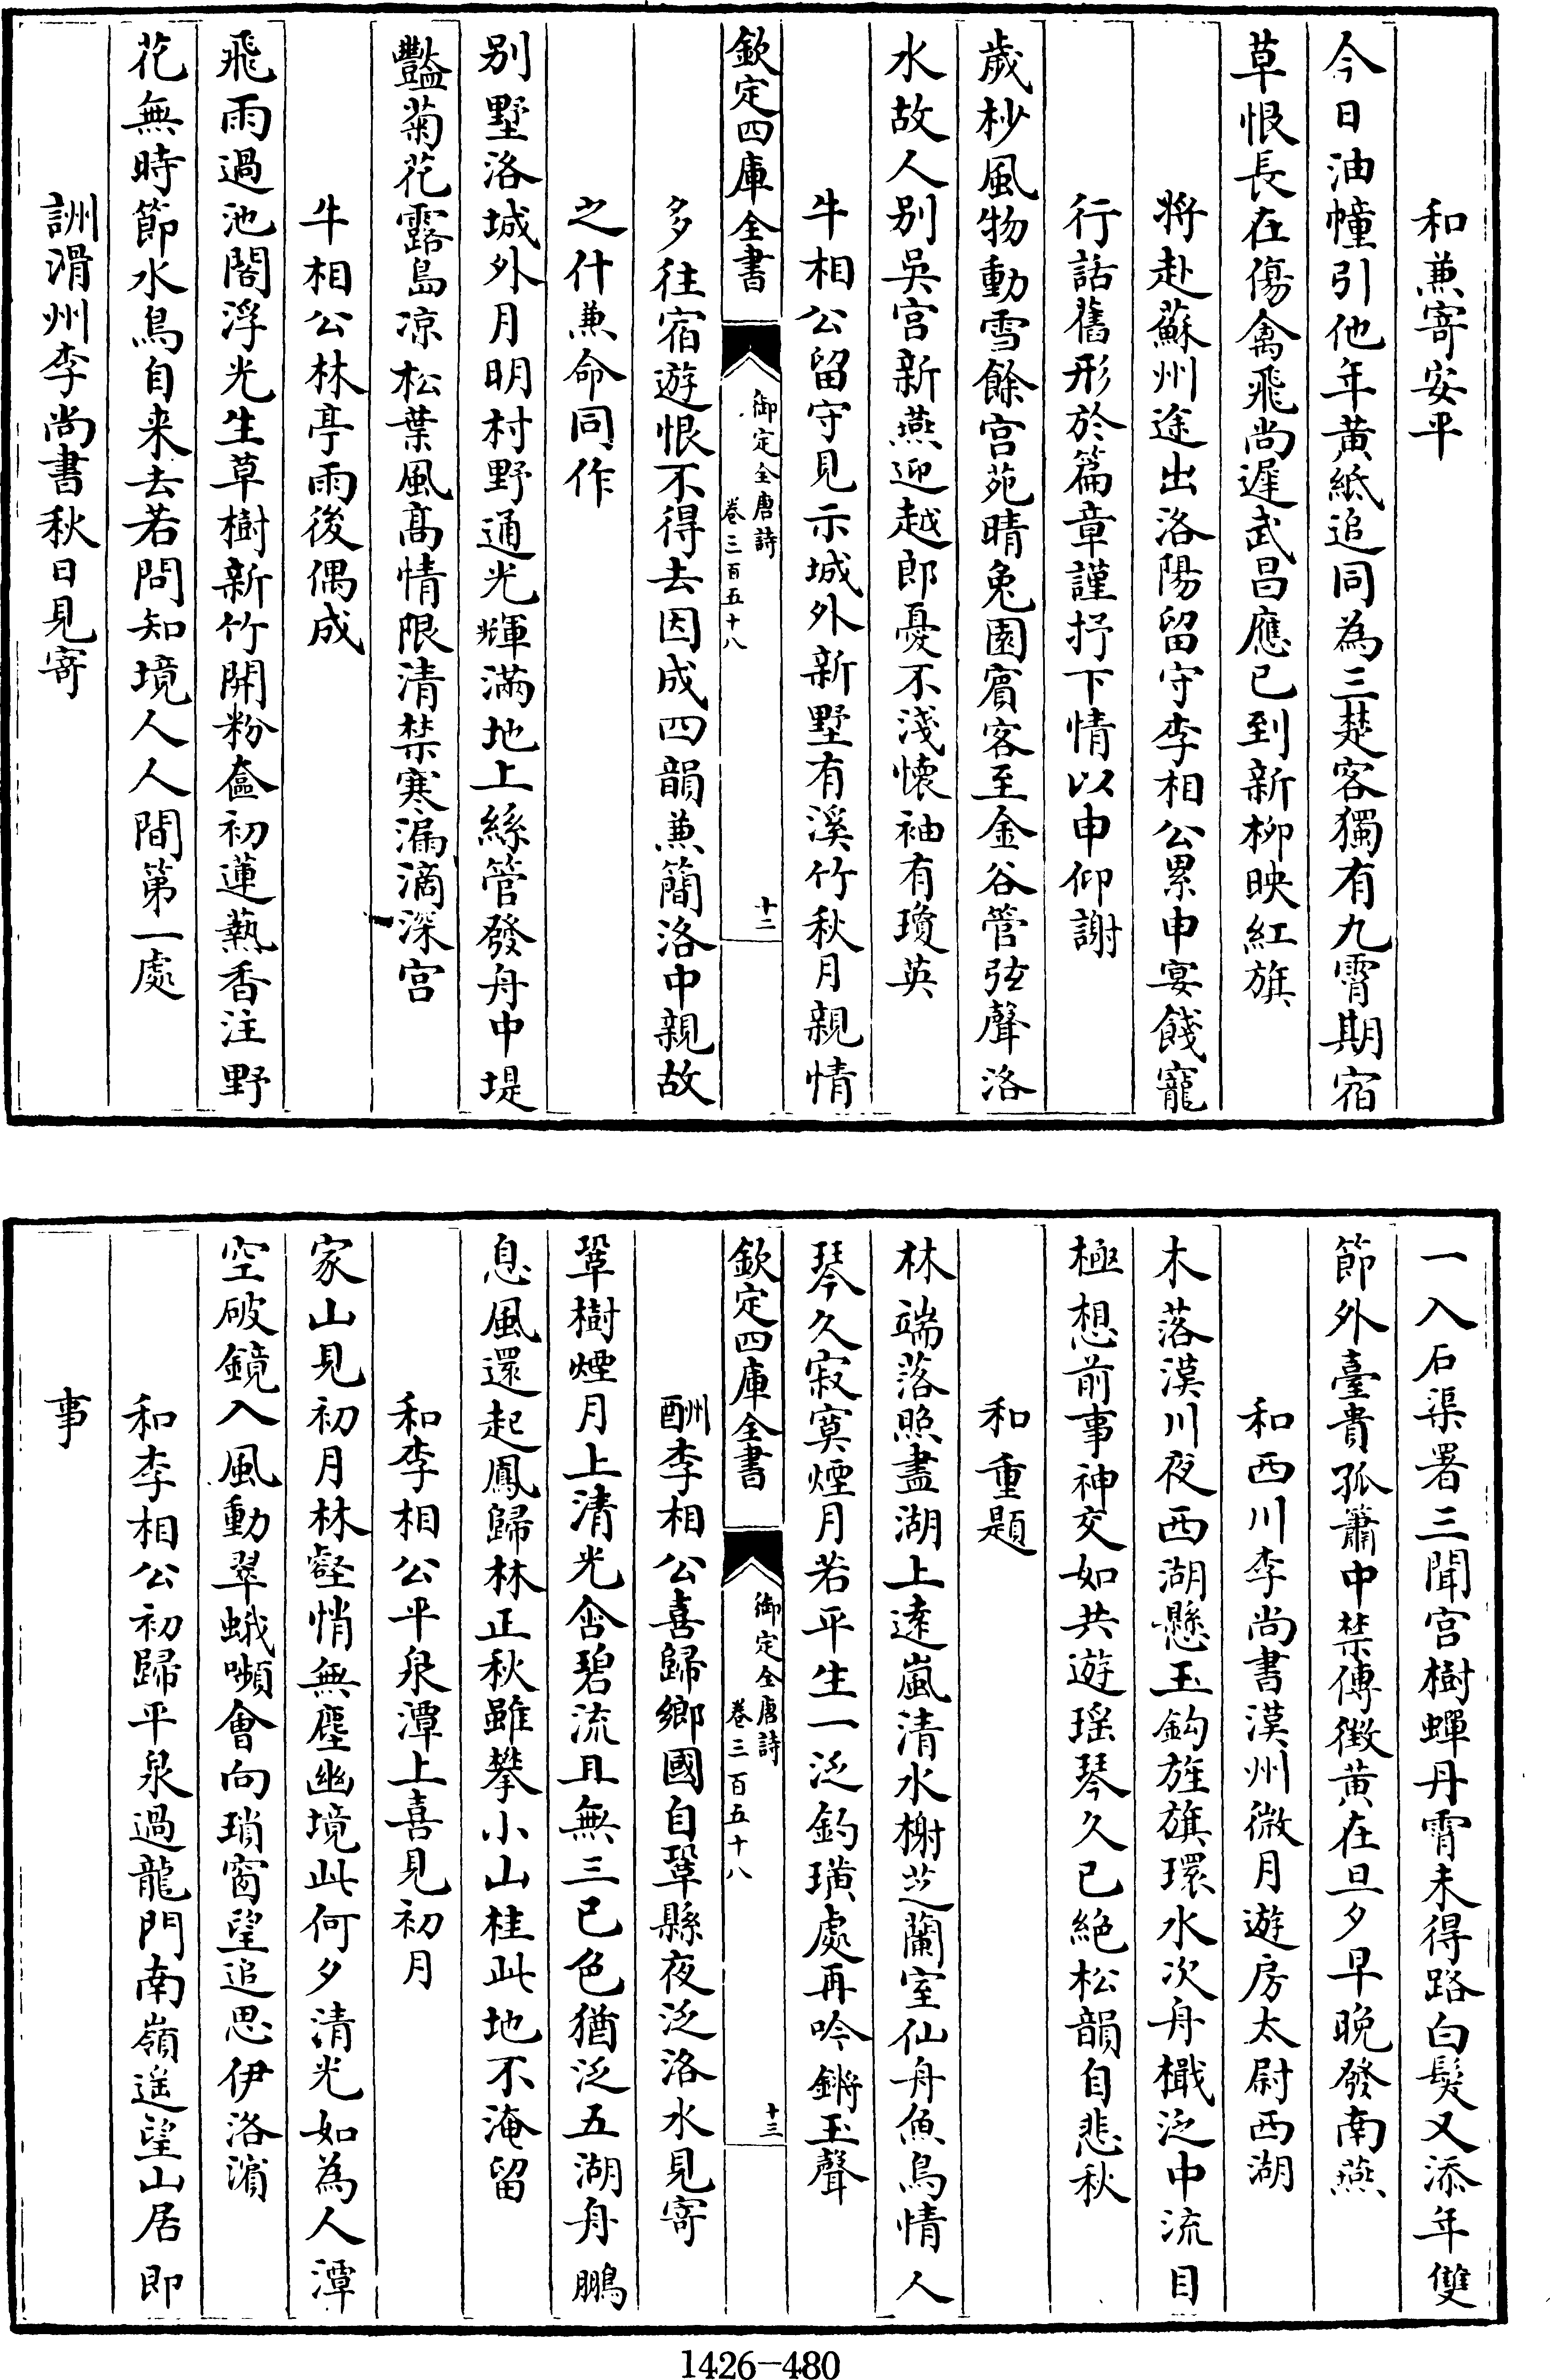 和兼寄安平
今日油幢引他年黄紙追同為三楚客獨有九霄期宿
草恨長在傷禽飛尚遲武昌應已到新柳映紅旗
將赴蘇州途出洛陽留守李相公累申宴餞寵
行話舊形於篇章謹抒下情以申仰謝
歲杪風物動雪餘宫苑晴兔園賔客至金谷管弦聲洛
水故人别吳宫新燕迎越郎憂不淺懐袖有瓊英
牛相公留守見示城外新墅有溪竹秋月親情
欽定四庫全書
御定全唐詩
卷三百五十八
十二
多往宿遊恨不得去因成四韻兼簡洛中親故
之什兼命同作
别墅洛城外月明村野通光輝滿地上絲管發舟中堤
豔菊花露島凉松葉風髙情限清禁寒漏滴深宫
牛相公林亭雨後偶成
飛雨過池閣浮光生草樹新竹開粉奩初蓮爇香注野
花無時節水鳥自来去若問知境人人間第一處
詶滑州李尚書秋日見寄
一入石渠署三聞宫樹蟬丹霄未得路白髮又添年雙
節外臺貴孤簫中禁傳徴黄在旦夕早晚發南燕
和西川李尚書漢州微月遊房太尉西湖
木落漢川夜西湖懸玉鈎旌旗環水次舟檝泛中流目
極想前事神交如共遊瑶琴久已絶松韻自悲秋
和重題
林端落照盡湖上逺嵐清水榭芝蘭室仙舟魚鳥情人
琴久寂寞煙月若平生一泛釣璜處再吟鏘玉聲
欽定四庫全書
御定全唐詩
卷三百五十八
十三
酬李相公喜歸鄉國自鞏縣夜泛洛水見寄
鞏樹煙月上清光含碧流且無三已色猶泛五湖舟鵬
息風還起鳳歸林正秋雖攀小山桂此地不淹留
和李相公平泉潭上喜見初月
家山見初月林壑悄無塵幽境此何夕清光如為人潭
空破鏡入風動翠蛾嚬會向瑣窗望追思伊洛濵
和李相公初歸平泉過龍門南嶺遥望山居即
事
1426-480